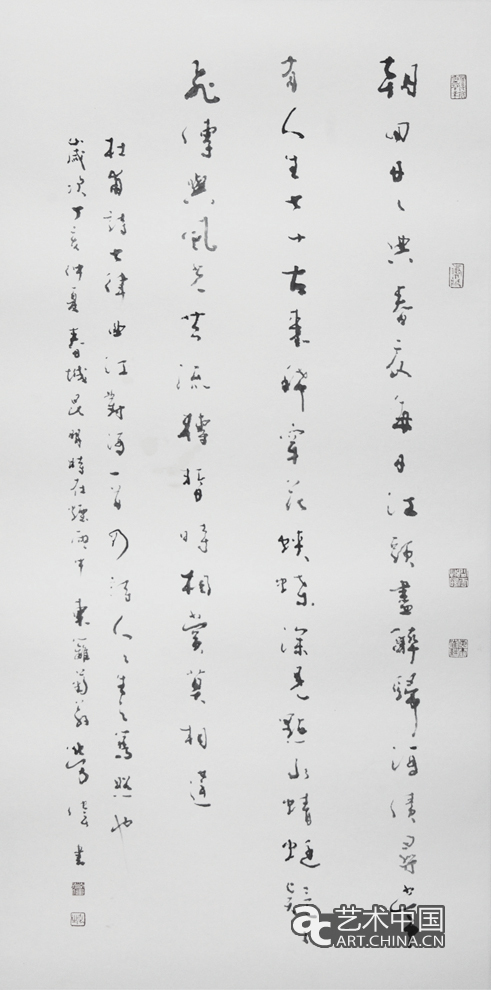 朝回日々典春衣每日江頭盡醉歸酒債尋
有人生七十古來稀穿花蛺蝶深見點水蜻蜓款
飛傳與風光共流轉暫時相賞莫相違
杜甫詩七律曲江對酒一首乃詩人々生之寫照也
歲次丁亥仲夏春城昆明時在煙雨中東籬菊翁書
ac 艺术中国
ART.CHINA.CN